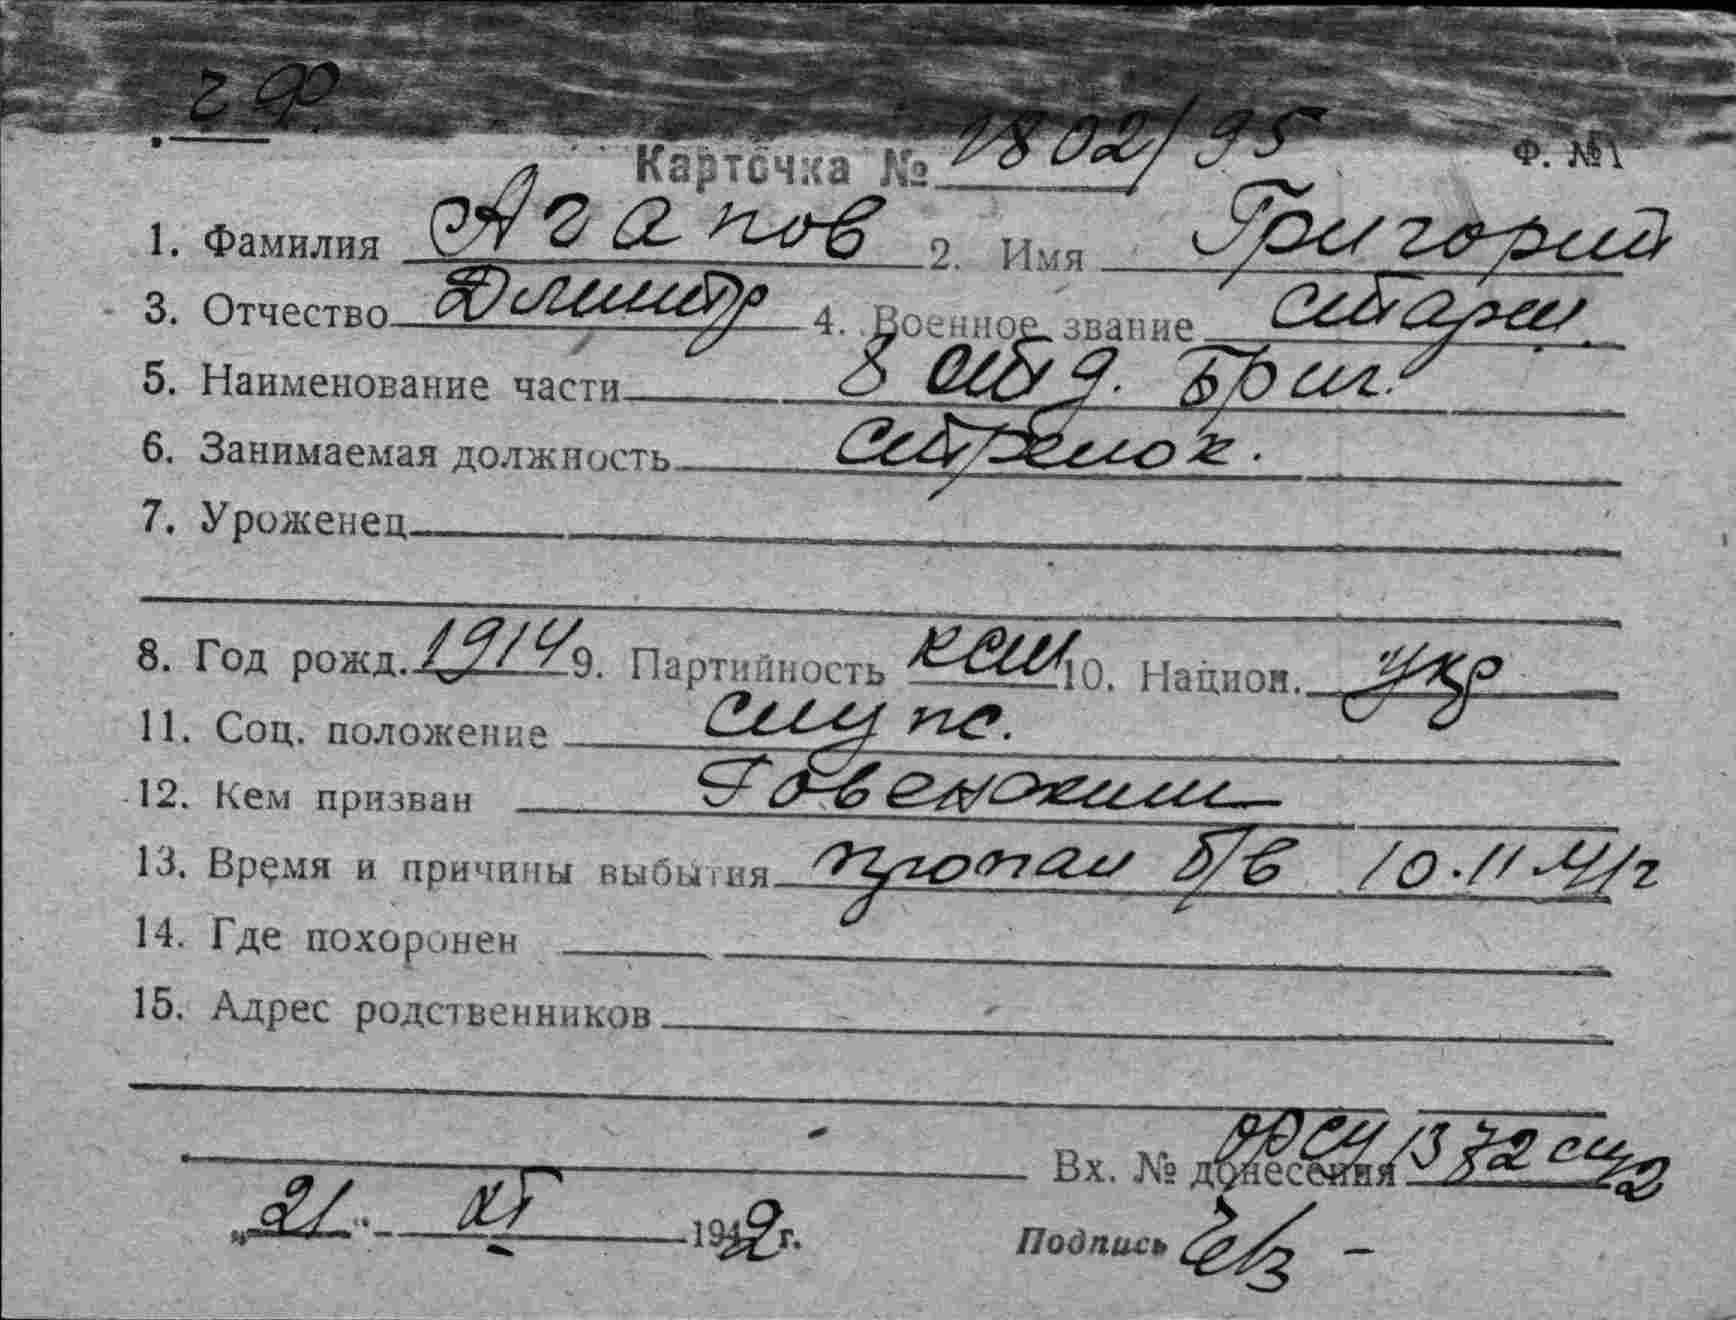 ч Ф
Карточка № 1802/95 Ф. №1
1. Фамилия Агапов 2. Имя Григорий
3. Отчество Дмитр 4. Военное звание старш.
5. Наименование части 8 отд. бриг.
6. Занимаемая должность стрелок.
7. Уроженец
8. Год рожд. 1914 9. Партийность ксм 10. Национ. укр
11. Соц. положение
12. Кем призван
13. Время и причины выбытия пропал б/в 10.11.41г
14. Где похоронен
15. Адрес родственников
Вх. № донесения 1372
"21" XI 1942 г. Подпись